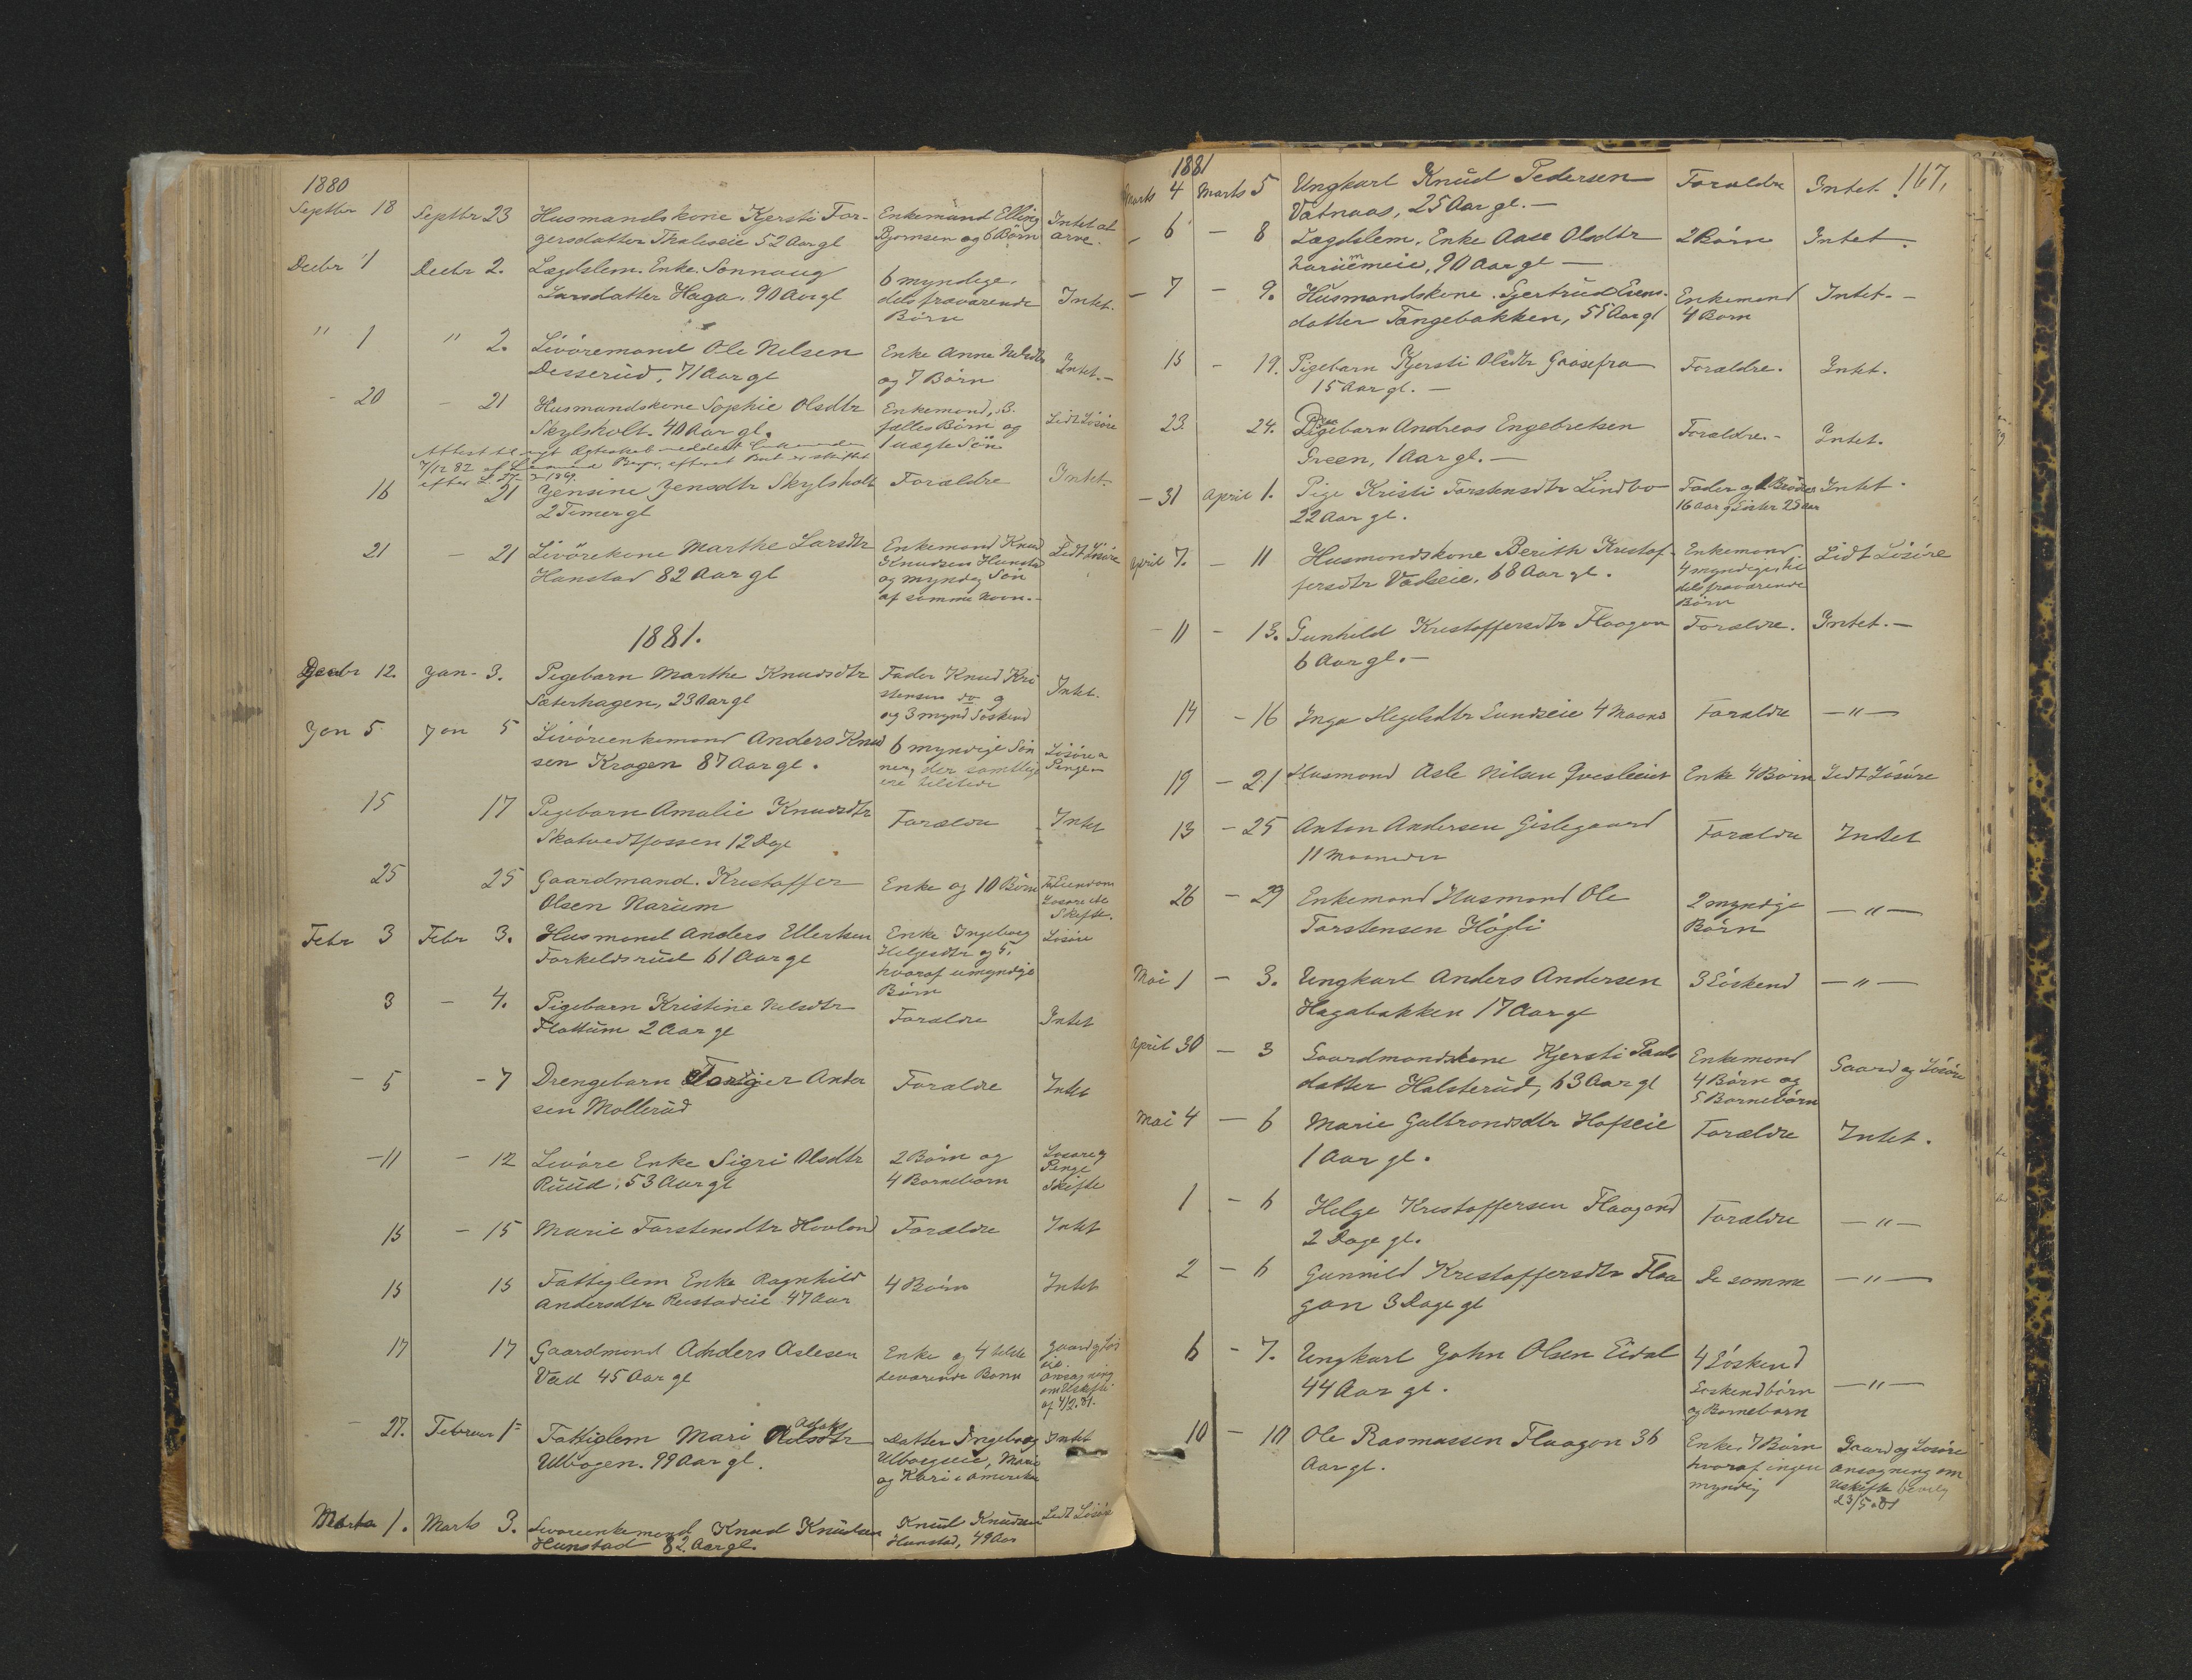 1880
Septbr 18 Septbr 23 Husmandskone Kjersti Tor- Enkemand Elling Intet at
gersdatter Thaleseie 52 Aar gl Bjornsen og 6 Börn arve.
Decbr 1 Decbr 2. Lægdslem. Enke. Sonnaug 6 myndige,
Larsdatter Haga. 90 Aar gl dels fraværende Intet.
Börn
" 1 " 2. Livöremand Ole Nilsen Enke Anne Nilsdtr
Desserud, 71 Aar gl og 7 Börn Intet.-
- 20 - 21 Husmandskone Sophie Olsdtr Enkemand, 3. Lidt Lösöre
Skylsholt. 40 Aar gl. fælles Börn og
1 uægte Sön
7/12 82 af
efter L. 1869.
16 21 Jensine Jensdtr Skylsholt Forældre Intet
2 Timer gl
21 - 21 Livörekone Marthe Larsdtr Enkemand Knud Lidt Lösöre
Hanstad 82 Aar gl Knudsen Hunstad
og myndig Sön
af samme Navn.-
1881.
Decbr 12. Jan- 3. Pigebarn Marthe Knudsdtr Fader Knud Kri
Sæterhagen, 23 Aar gl stensen do g Intet.
og 3 mynd Söskend
Jan 5 Jan 5 Livöreenkemand Anders Knud 6 myndige Sön Lösöre a
sen Kragen 87 Aar gl. ner, der samtlige Penge-
ere tilstede
15 17 Pigebarn Amalie Knudsdtr Forældre Intet
Skatvedtfossen 12 Dage
25 25 Gaardmand. Kristoffer Enke og 10 Börn Eiendom
Olsen Narum Lösöre
Skifte.
Febr 3 Febr 3. Husmand Anders Ellertsen Enke Ingeborg Lösöre
Torkeldsrud 61 Aar gl Helgesdtr og 5,
hvoraf umyndige
Börn
3 - 4. Pigebarn Kristine Nilsdtr Forældre Intet
Flattum 2 Aar gl
- 5 - 7 Drengebarn Torger Ander Forældre Intet
sen Mollerud
- 11 - 12 Livöre Enke Sigri Olsdtr 2 Börn og Lösöre og
Ruud, 53 Aar gl 4 Bornebörn Penge
Skifte
15 - 15 Marie Torstensdtr Hovland Forældre Intet
15 15 Fattiglem Enke Ragnhild 4 Börn Intet
Andersdtr Rustadeie 47 Aar
17 17 Gaardmand Anders Aslesen Enke og 4 tilste Gaard og Lös
Vad 45 Aar gl deværende Born öre.
Ansøgning
om Uskifte
af 4/2.81.
- 27. Februar 1- Fattiglem Mari Aslaks Datter Ingeborg Intet
Ulbogen. 99 Aar gl. Ulbogseie, Marie
og Kari i Amerika
Marts 1. Marts 3. Livöreenkemand Knud Knudsen Knud Knudsen Lidt Lösöre
Hunstad 82 Aar gl. Hunstad, 49 Aar
1881
Marts 4 Marts 5 Ungkarl Knud Pedersen Forældre Intet 167.
Vatnaas, 25 Aar gl.-
- 6 - 8 Lægdslem, Enke Aase Olsdtr 2 Börn Intet.
90 Aar gl -
- 7 - 9. Husmandskone. Gjertrud Evens- Enkemand Intet.-
datter Tangebakken, 55 Aar gl 4 Born
15 - 19. Pigebarn Kjersti Olsdtr Gaasefra Forældre. Intet.
15 Aar gl.-
23 24. Andreas Engebretsen Forældre.- Intet.
Green, 1 Aar gl.-
- 31 April 1. Pige Kristi Torstensdtr Lindbo Fader og 1 Broder Intet.
22 Aar gl. 16 Aar g Sister 25 Aar
April 7. - 11 Husmandskone Berith Kristof- Enkemand Lidt Lösöre
fersdtr Vadseie, 68 Aar gl. 4 myndige
dels fraværende
Börn
- 11 - 13. Gunhild Kristoffersdtr Flaagan Forældre. Intet.-
6 Aar gl.-
14 - 16 Inga Hegelsdtr Lundseie 4 Maand Forældre - " -
19 - 21 Husmand Asle Nilsen Gvesleeiet Enke 4 Börn Lidt Lösöre
13 - 25 Anton Andersen Gislegaard Forældre Intet
11 Maaneder
26 - 29 Enkemand Husmand Ole 2 myndige - " -
Torstensen Högli Börn
Mai 1 - 3. Ungkarl Anders Andersen 3 Söskend - " -
Hagabakken 17 Aar gl
April 30 - 3 Gaardmandskone Kjersti Pauls Enkemand Gaard og Lösöre
datter Halsterud, 63 Aar gl 4 Börn og
5 Bornebörn
Mai 4 - 6 Marie Gulbrandsdtr Hofseie Forældre Intet.
1 Aar gl.
1 - 6 Helge Kristoffersen Flaagand Forældre - " -
2 Dage gl.
2 - 6 Gunnild Kristoffersdtr Flaa De samme - " -
gan 3 Dage gl
6 - 7. Ungkarl John Olsen Eidal 4 Söskend
44 Aar gl. Soskendbörn - " -
og Borneborn
10 - 10 Ole Rasmussen Flaagan 36 Enke, 7 Börn Gaard og Lösöre
Aar gl. hvoraf ingen Ansøgning om
myndig Uskifte bevilg
23/5.81